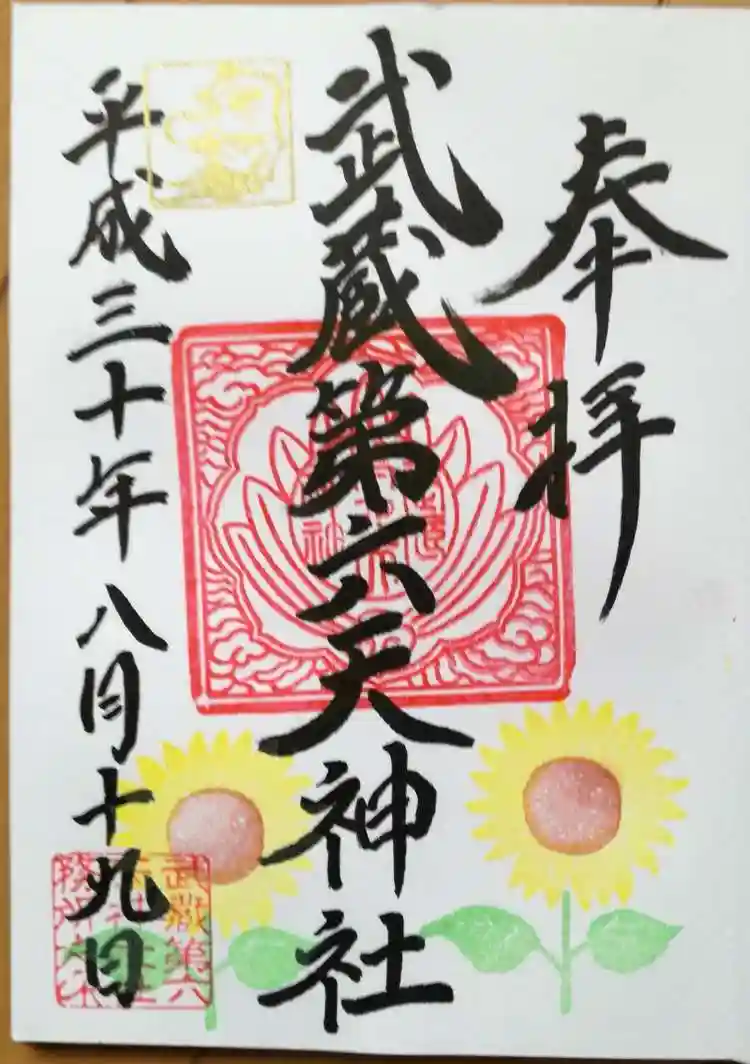 奉拝
武蔵第六天神社
平成三十年八月十九日
武蔵第六